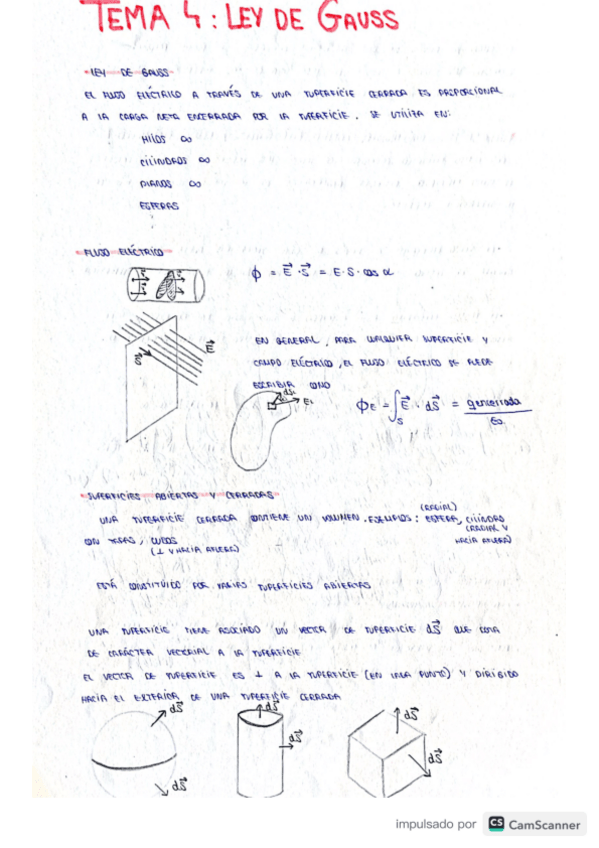 TEMA 4: LEY DE GAUSS
LEY DE GAUSS
EL FLUJO ELÉCTRICO A TRAVÉS DE UNA SUPERFICIE CERRADA ES PROPORCIONAL
A LA CARGA NETA ENCERRADA POR LA SUPERFICIE. SE UTILIZA EN:
HILOS ∞
CILINDROS ∞
PLANOS ∞
ESFERAS
FLUJO ELÉCTRICO
ϕ = E⃗ · S⃗ = E · S · cos α
S⃗
E⃗
EN GENERAL, PARA CUALQUIER SUPERFICIE Y
CAMPO ELÉCTRICO, EL FLUJO ELÉCTRICO SE PUEDE
ESCRIBIR COMO
ϕE = ∫S E⃗ · dS⃗ = qencerrada / ε0
SUPERFICIES ABIERTAS Y CERRADAS
(RADIAL)
UNA SUPERFICIE CERRADA CONTIENE UN VOLUMEN. EJEMPLOS: ESFERA, CILINDRO
(RADIAL Y
HACIA AFUERA)
CON TAPAS, CUBOS
(⊥ Y HACIA AFUERA)
ESTÁ CONSTITUIDO POR VARIAS SUPERFICIES ABIERTAS
UNA SUPERFICIE TIENE ASOCIADO UN VECTOR DE SUPERFICIE dS⃗ QUE DOTA
DE CARÁCTER VECTORIAL A LA SUPERFICIE
EL VECTOR DE SUPERFICIE ES ⊥ A LA SUPERFICIE (EN CADA PUNTO) Y DIRIGIDO
HACIA EL EXTERIOR DE UNA SUPERFICIE CERRADA
dS⃗
dS⃗
dS⃗
dS⃗
dS⃗
dS⃗
impulsado por CS CamScanner